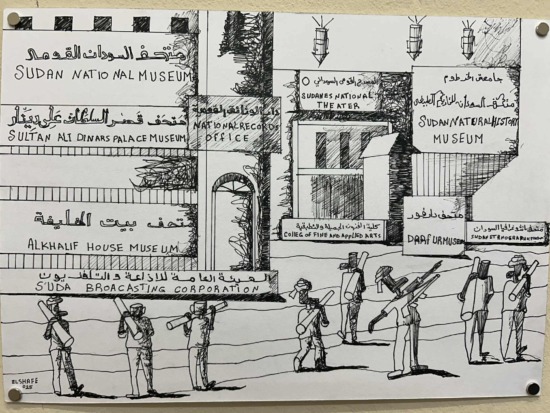 متحف السودان القومي
SUDAN NATIONAL MUSEUM
متحف قصر السلطان علي دينار
SULTAN ALI DINARS PALACE MUSEUM
متحف بيت الخليفة
ALKHALIF HOUSE MUSEUM
الهيئة العامة للاذاعة والتلفزيون
SUDA BROACASTING CORPORATION
دار الوثائق القومية
NATIONAL RECORDS
OFFICE
المسرح القومي السوداني
SUDANES NATIONAL
THEATER
كلية الفنون الجميلة والتطبيقية
COLLEG OF FINE AND APPLIED ARTS
جامعة الخرطوم
متحف السودان للتاريخ الطبيعي
SUDAN NATURAL HISTORY
MUSEUM
متحف دارفور
DARFUR MUSEUM
السودان
SUDAN
ELSHAFE